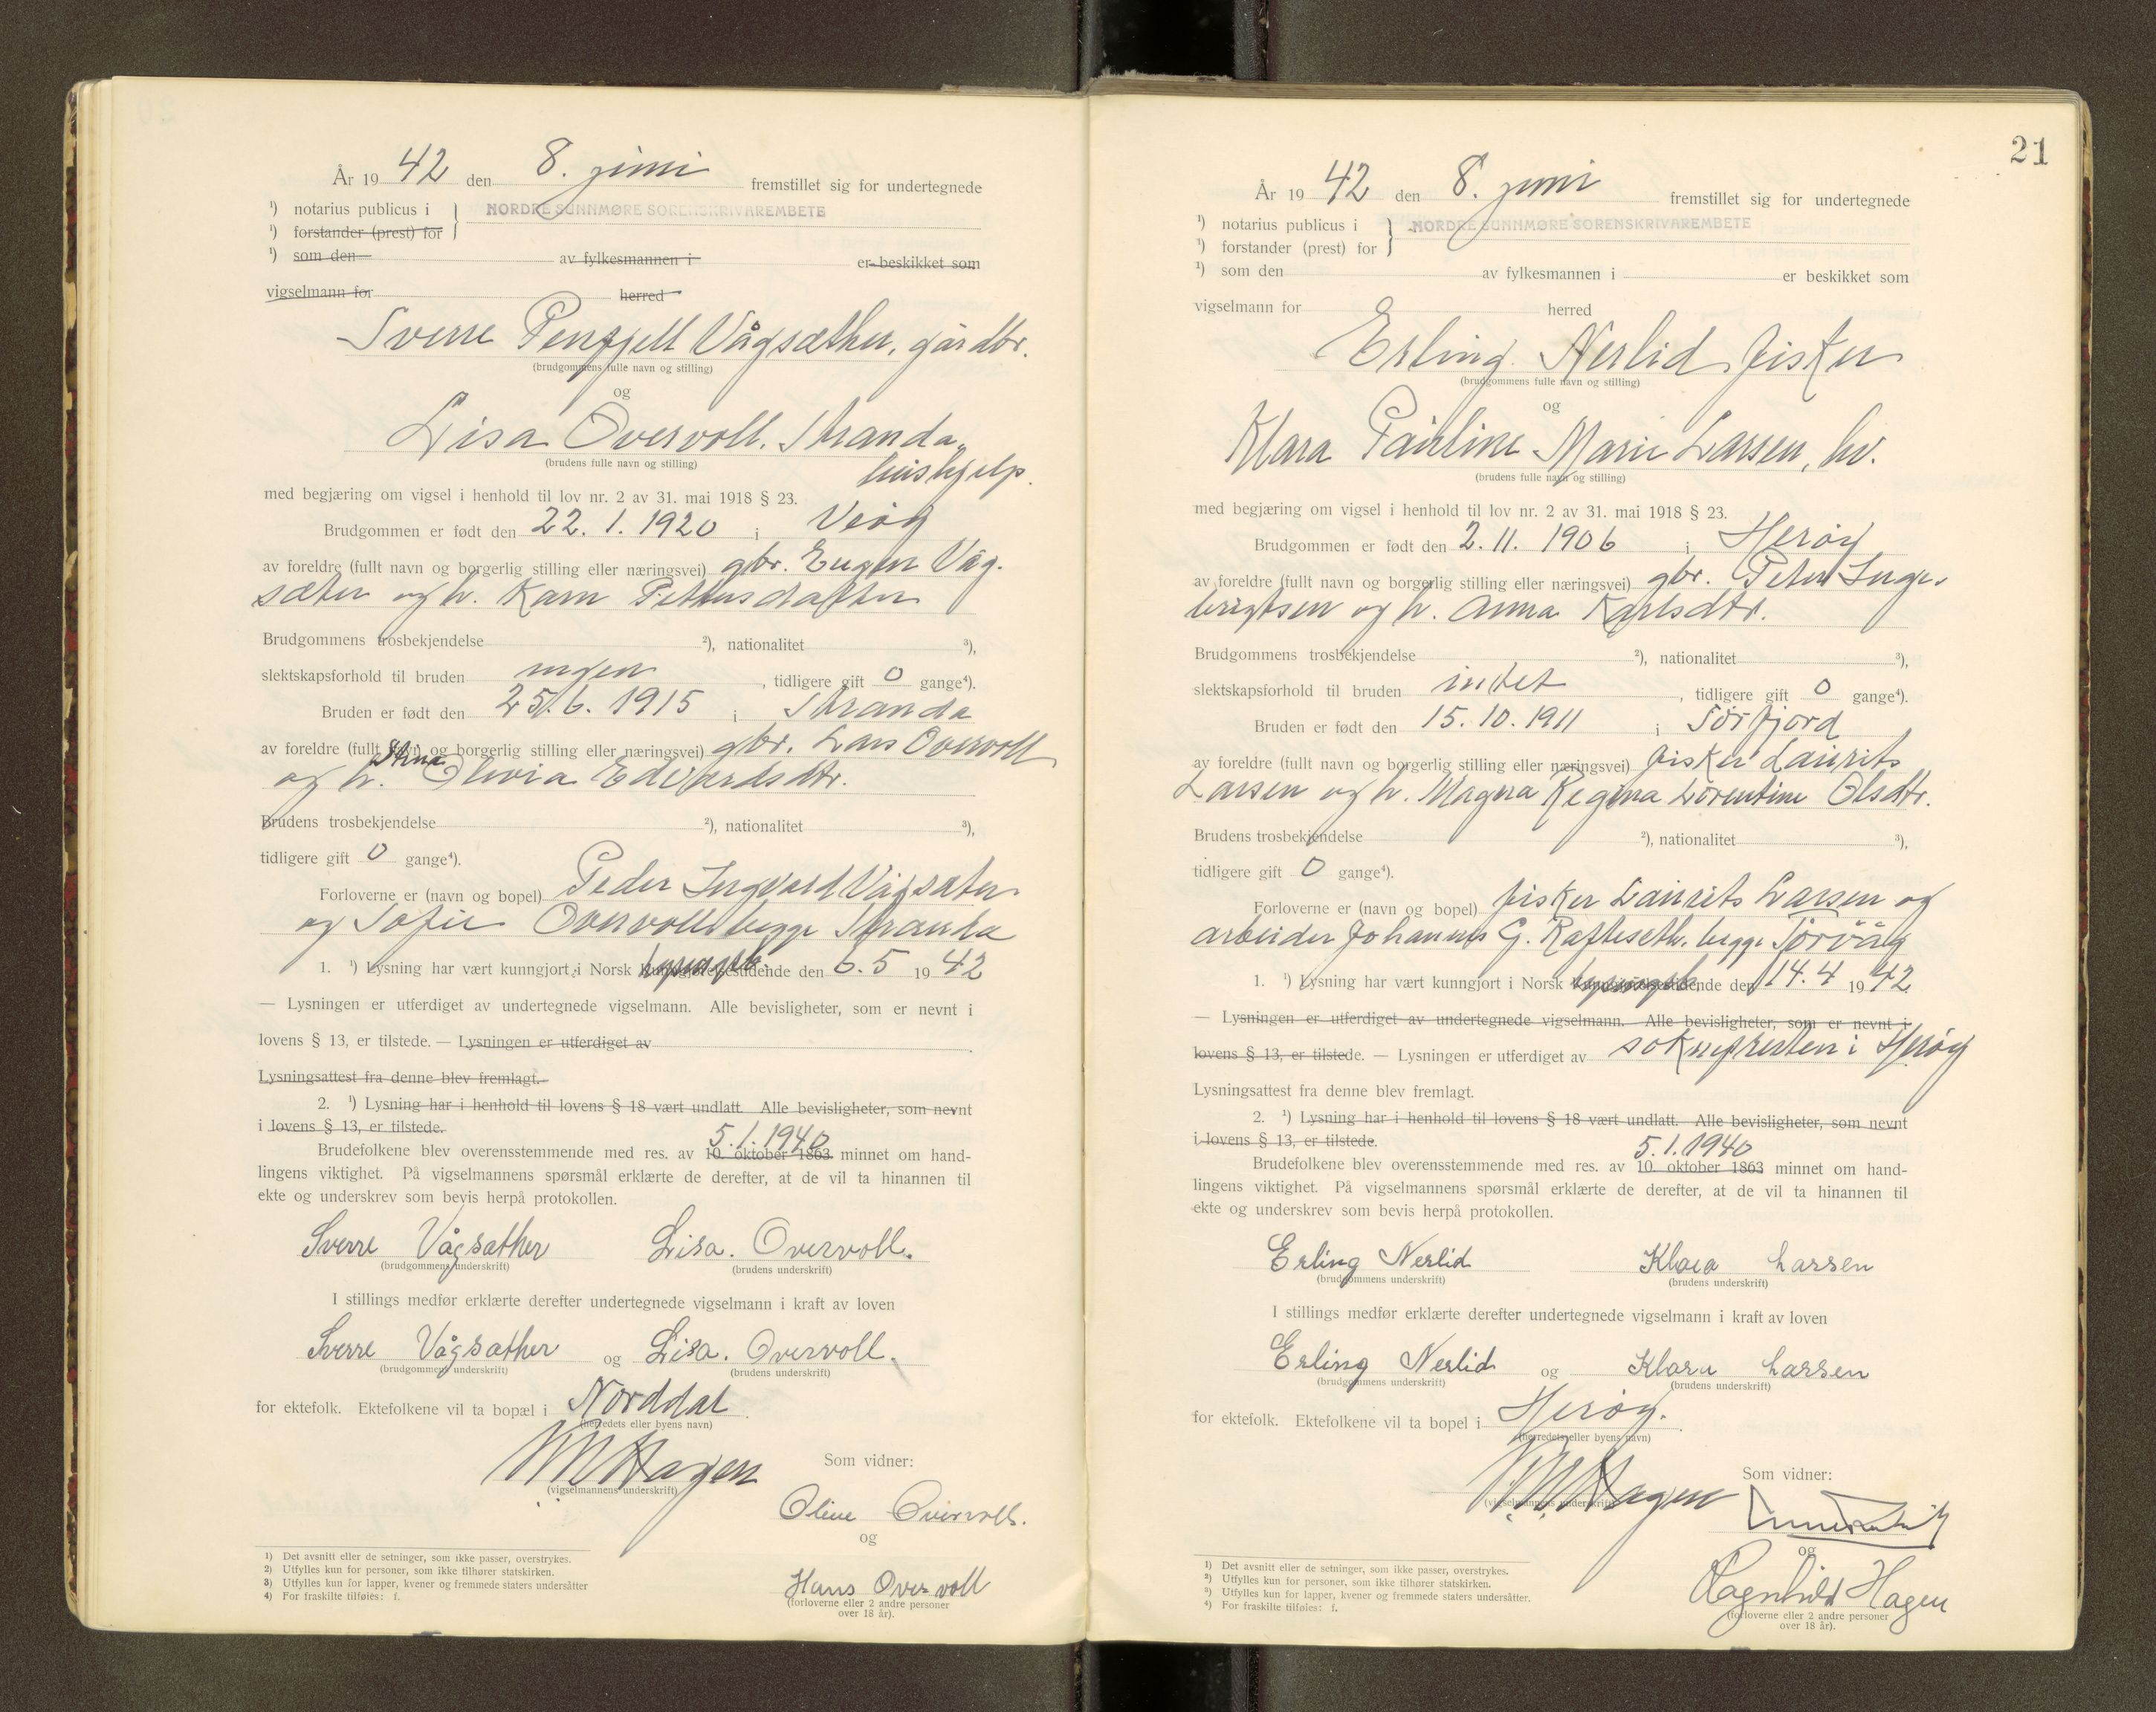 År 19 42 den 8. juni fremstillet sig for undertegnede
¹) notarius publicus i } NORDRE SUNNMØRE SORENSKRIVAREMBETE
¹) forstander (prest) for
¹) som den av fylkesmannen i er beskikket som
vigselmann for herred
Sverre Penfjell Vågsæther, gårdbr.
(brudgommens fulle navn og stilling)
og
Lisa Overvoll, Stranda,
(brudens fulle navn og stilling)
hushjelp.
med begjæring om vigsel i henhold til lov nr. 2 av 31. mai 1918 § 23.
Brudgommen er født den 22. 1. 1920 i Veøy
av foreldre (fullt navn og borgerlig stilling eller næringsvei) gbr. Eugen Våg-
sæter og h. Karn Pettersdatter
Brudgommens trosbekjendelse ²), nationalitet ³),
slektskapsforhold til bruden ingen, tidligere gift 0 gange⁴).
Bruden er født den 25. 6. 1915 i Stranda
av foreldre (fullt navn og borgerlig stilling eller næringsvei) gbr. Lars Overvoll
og h. Stina Olivia Edvardsdtr.
Brudens trosbekjendelse ²), nationalitet ³),
tidligere gift 0 gange⁴).
Forloverne er (navn og bopel) Peder Ingvard Vågsæter
og Sofie Overvoll begge Stranda
1. ¹) Lysning har vært kunngjort i Norsk lysingsbl. den 6. 5 19 42
— Lysningen er utferdiget av undertegnede vigselmann. Alle bevisligheter, som er nevnt i
lovens § 13, er tilstede. — Lysningen er utferdiget av
Lysningsattest fra denne blev fremlagt.
2. ¹) Lysning har i henhold til lovens § 18 vært undlatt. Alle bevisligheter, som nevnt
i lovens § 13, er tilstede.
5. 1. 1940
Brudefolkene blev overensstemmende med res. av 10. oktober 1863 minnet om hand-
lingens viktighet. På vigselmannens spørsmål erklærte de derefter, at de vil ta hinannen til
ekte og underskrev som bevis herpå protokollen.
Sverre Vågsæther Lisa. Overvoll.
(brudgommens underskrift) (brudens underskrift)
I stillings medfør erklærte derefter undertegnede vigselmann i kraft av loven
Sverre Vågsæther og Lisa. Overvoll.
(brudgommens underskrift) (brudens underskrift)
for ektefolk. Ektefolkene vil ta bopæl i Norddal
(herredets eller byens navn)
Hagen
(vigselmannens underskrift)
Som vidner:
Oline Overvoll.
og
Hans Overvoll
(forloverne eller 2 andre personer
over 18 år).
¹) Det avsnitt eller de setninger, som ikke passer, overstrykes.
²) Utfylles kun for personer, som ikke tilhører statskirken.
³) Utfylles kun for lapper, kvener og fremmede staters undersåtter
⁴) For fraskilte tilføies: f.
21
År 19 42 den 8. juni fremstillet sig for undertegnede
¹) notarius publicus i } NORDRE SUNNMØRE SORENSKRIVAREMBETE
¹) forstander (prest) for
¹) som den av fylkesmannen i er beskikket som
vigselmann for herred
Erling Nerlid, fisker
(brudgommens fulle navn og stilling)
og
Klara Pauline Marie Larsen, hv.
(brudens fulle navn og stilling)
med begjæring om vigsel i henhold til lov nr. 2 av 31. mai 1918 § 23.
Brudgommen er født den 2. 11. 1906 i Herøy
av foreldre (fullt navn og borgerlig stilling eller næringsvei) gbr. Peter Inge-
brigtsen og h. Anna Karlsdtr.
Brudgommens trosbekjendelse ²), nationalitet ³),
slektskapsforhold til bruden intet, tidligere gift 0 gange⁴).
Bruden er født den 15. 10. 1911 i Sørfjord
av foreldre (fullt navn og borgerlig stilling eller næringsvei) fisker Laurits
Larsen og h. Magna Regina Lorentine Olsdtr.
Brudens trosbekjendelse ²), nationalitet ³),
tidligere gift 0 gange⁴).
Forloverne er (navn og bopel) fisker Laurits Larsen og
arbeider Johannes G. Rafteseth, begge Torvåg
1. ¹) Lysning har vært kunngjort i Norsk lysingsbl. den 14. 4 19 42
— Lysningen er utferdiget av undertegnede vigselmann. Alle bevisligheter, som er nevnt i
lovens § 13, er tilstede. — Lysningen er utferdiget av soknepresten i Herøy
Lysningsattest fra denne blev fremlagt.
2. ¹) Lysning har i henhold til lovens § 18 vært undlatt. Alle bevisligheter, som nevnt
i lovens § 13, er tilstede.
5. 1. 1940
Brudefolkene blev overensstemmende med res. av 10. oktober 1863 minnet om hand-
lingens viktighet. På vigselmannens spørsmål erklærte de derefter, at de vil ta hinannen til
ekte og underskrev som bevis herpå protokollen.
Erling Nerlid Klara Larsen
(brudgommens underskrift) (brudens underskrift)
I stillings medfør erklærte derefter undertegnede vigselmann i kraft av loven
Erling Nerlid og Klara Larsen
(brudgommens underskrift) (brudens underskrift)
for ektefolk. Ektefolkene vil ta bopel i Herøy.
(herredets eller byens navn)
Hagen
(vigselmannens underskrift)
Som vidner:
og
Ragnhild Hagen
(forloverne eller 2 andre personer
over 18 år).
¹) Det avsnitt eller de setninger, som ikke passer, overstrykes.
²) Utfylles kun for personer, som ikke tilhører statskirken.
³) Utfylles kun for lapper, kvener og fremmede staters undersåtter.
⁴) For fraskilte tilføies: f.